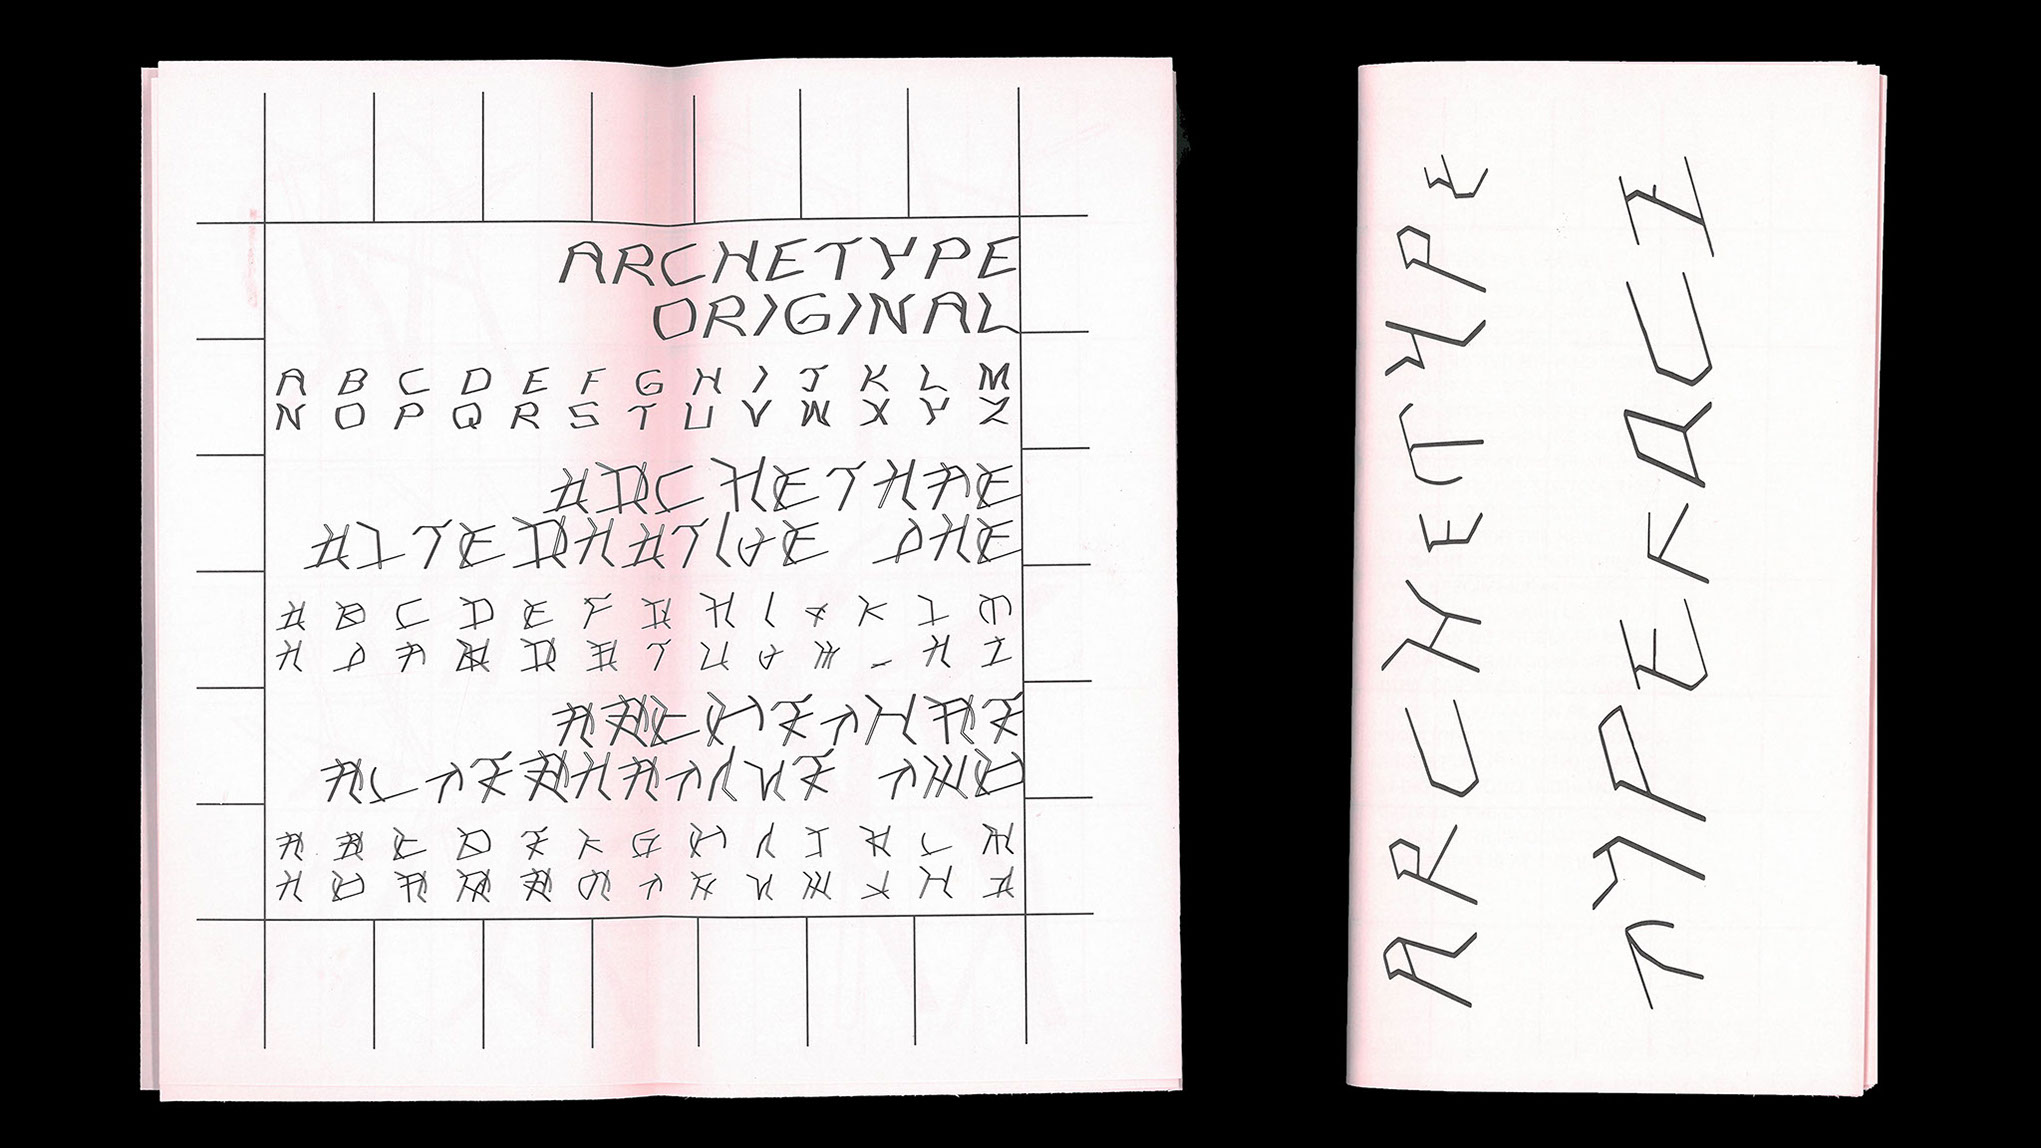 ARCHETYPE
ORIGINAL
A B C D E F G H I J K L M
N O P Q R S T U V W X Y Z
ARCHETYPE
ALTERNATIVE ONE
A B C D E F G H I J K L M
N O P Q R S T U V W X Y Z
ARCHETYPE
ALTERNATIVE TWO
A B C D E F G H I J K L M
N O P Q R S T U V W X Y Z
ARCHETYPE
TYPEFACE